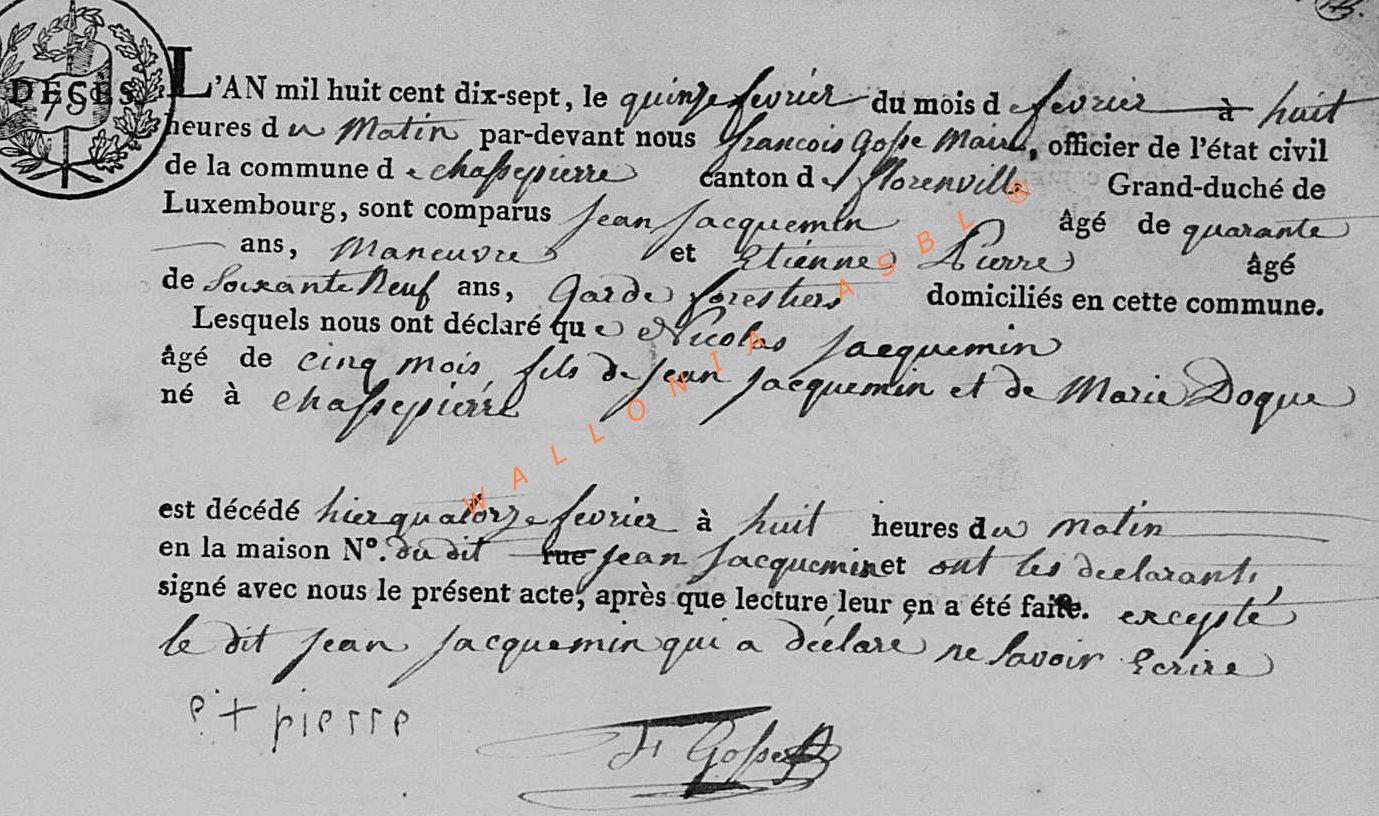 DECÈS.
L'AN mil huit cent dix-sept, le quinze fevrier du mois de fevrier à huit
heures du Matin par-devant nous francois Gosse Maire, officier de l'état civil
de la commune de chassepierre canton de florenville Grand-duché de
Luxembourg, sont comparus jean jacquemin âgé de quarante
ans, Maneuvre et Etienne Pierre âgé
de Soixante Neuf ans, Garde forestiers domiciliés en cette commune.
Lesquels nous ont déclaré que Nicolas jacquemin
âgé de cinq mois, fils de jean jacquemin et de Marie Doque
né à chassepierre
est décédé hier quatorze fevrier à huit heures du matin
en la maison N°. du dit rue jean jacquemin et ont les declarants,
signé avec nous le présent acte, après que lecture leur en a été faite. excepté
le dit jean jacquemin qui a déclaré ne savoir Ecrire
e + pierre
f Gosse
WALLONIA ASBL ®